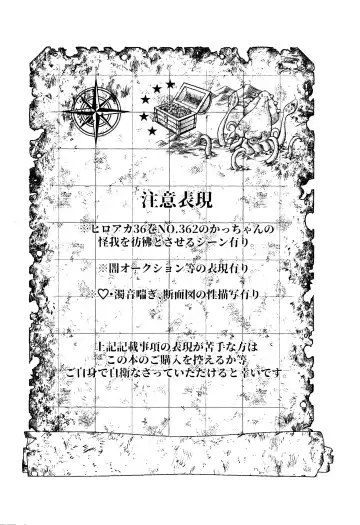 注意表現
※ヒロアカ36巻NO.362のかっちゃんの
怪我を彷彿とさせるシーン有り
※闇オークション等の表現有り
※♡・濁音喘ぎ、断面図の性描写有り
上記記載事項の表現が苦手な方は
この本のご購入を控えるか等、
ご自身で自衛なさっていただけると幸いです